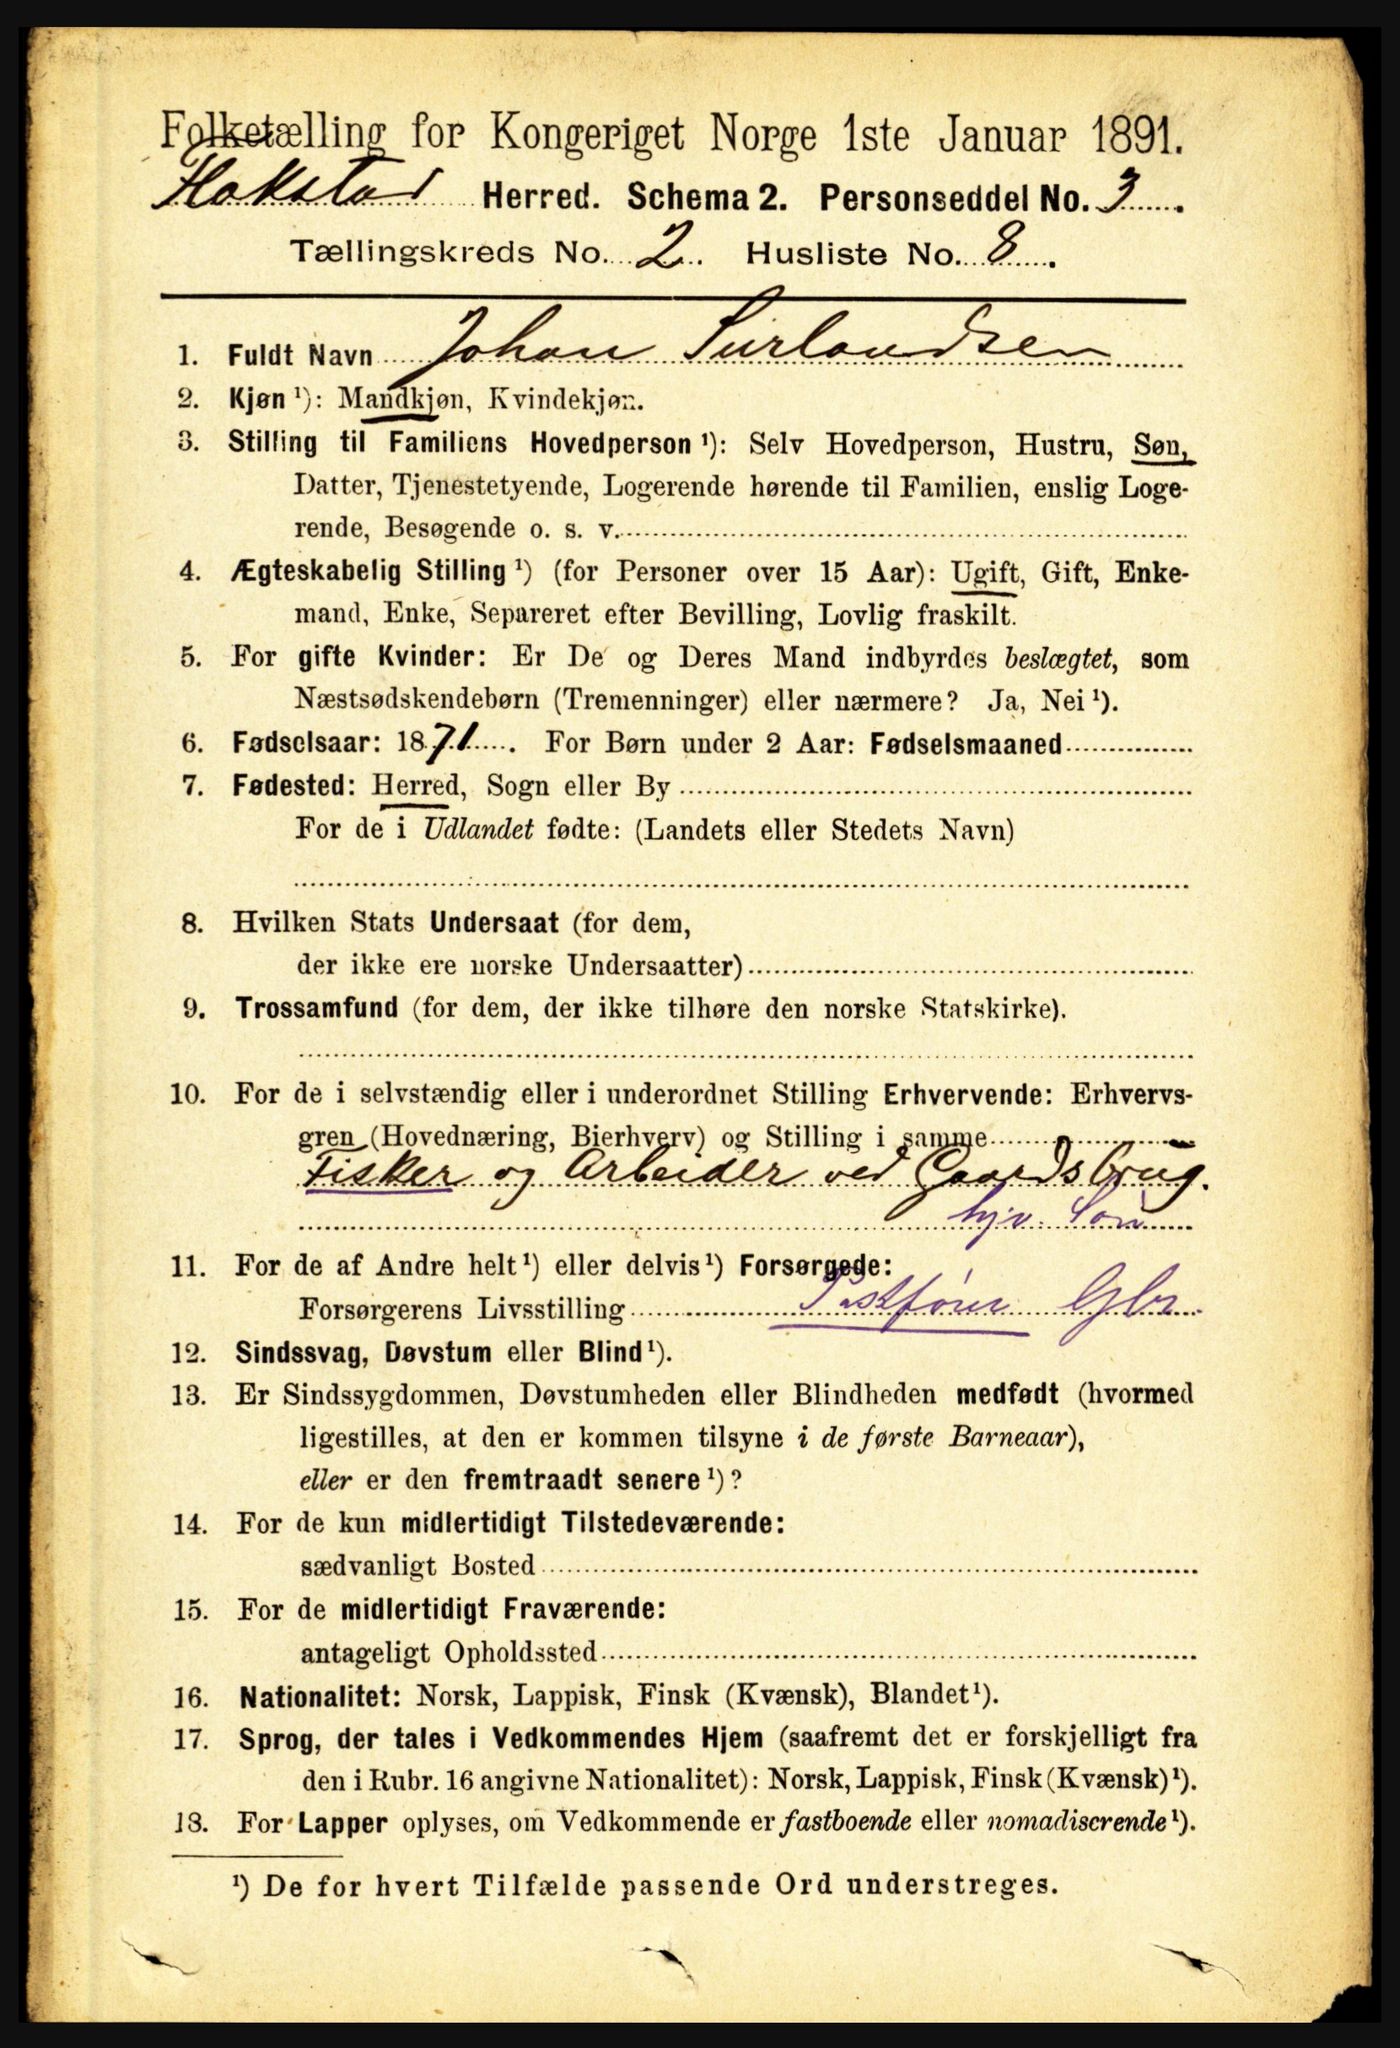 Folketælling for Kongeriget Norge 1ste Januar 1891.
Flakstad Herred. Schema 2. Personseddel No. 3.
Tællingskreds No. 2. Husliste No. 8.
1. Fuldt Navn Johan Surlandsen
2. Kjøn ¹): Mandkjøn, Kvindekjøn.
3. Stilling til Familiens Hovedperson ¹): Selv Hovedperson, Hustru, Søn,
Datter, Tjenestetyende, Logerende hørende til Familien, enslig Loge-
rende, Besøgende o. s. v.
4. Ægteskabelig Stilling ¹) (for Personer over 15 Aar): Ugift, Gift, Enke-
mand, Enke, Separeret efter Bevilling, Lovlig fraskilt.
5. For gifte Kvinder: Er De og Deres Mand indbyrdes beslægtet, som
Næstsødskendebørn (Tremenninger) eller nærmere? Ja, Nei ¹).
6. Fødselsaar: 1871. For Børn under 2 Aar: Fødselsmaaned
7. Fødested: Herred, Sogn eller By
For de i Udlandet fødte: (Landets eller Stedets Navn)
8. Hvilken Stats Undersaat (for dem,
der ikke ere norske Undersaatter)
9. Trossamfund (for dem, der ikke tilhøre den norske Statskirke).
10. For de i selvstændig eller i underordnet Stilling Erhvervende: Erhvervs-
gren (Hovednæring, Bierhverv) og Stilling i samme
Fisker og Arbeider ved Gaardsbrug.
hjv. Søn
11. For de af Andre helt ¹) eller delvis ¹) Forsørgede:
Forsørgerens Livsstilling Gbr
12. Sindssvag, Døvstum eller Blind ¹).
13. Er Sindssygdommen, Døvstumheden eller Blindheden medfødt (hvormed
ligestilles, at den er kommen tilsyne i de første Barneaar),
eller er den fremtraadt senere ¹)?
14. For de kun midlertidigt Tilstedeværende:
sædvanligt Bosted
15. For de midlertidigt Fraværende:
antageligt Opholdssted
16. Nationalitet: Norsk, Lappisk, Finsk (Kvænsk), Blandet ¹).
17. Sprog, der tales i Vedkommendes Hjem (saafremt det er forskjelligt fra
den i Rubr. 16 angivne Nationalitet): Norsk, Lappisk, Finsk (Kvænsk) ¹).
18. For Lapper oplyses, om Vedkommende er fastboende eller nomadiserende ¹).
¹) De for hvert Tilfælde passende Ord understreges.